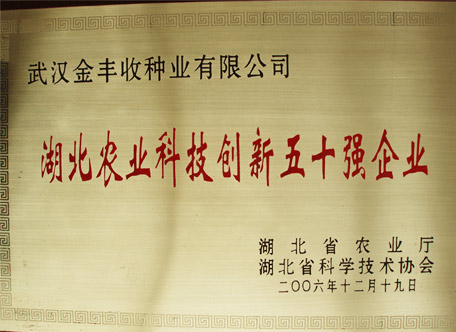 武汉金丰收种业有限公司
湖北农业科技创新五十强企业
湖北省农业厅
湖北省科学技术协会
二〇〇六年十二月十九日